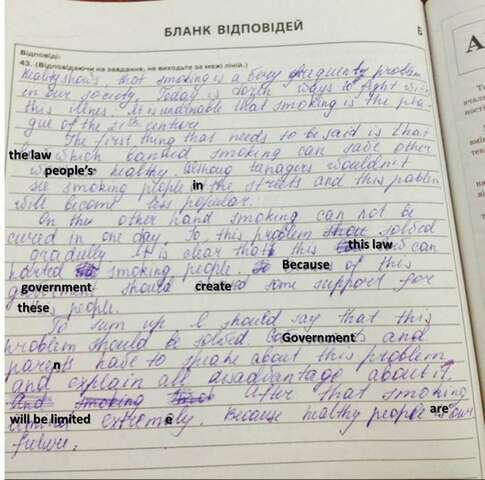 БЛАНК ВІДПОВІДЕЙ
Б
Відповіді
43. (Відповідаючи на завдання, не виходьте за межі ліній.)
Reality shows, that smoking is a very frequently problem
in our society. Today is ways to fight with
this illnes. It is undeniable that smoking is the pla-
gue of the 21th centure
The first thing that needs to be said is that
the law which banded smoking can save other
people's healthy. Althoug tanagers wouldn't
see smoking people in the streets and this pablem
will become less popular.
On the other hand smoking can not be
cured in one day. So this problem solved
gradually. It is clear that this this law can
harted smoking people. Because of this
government should create some support for
these people.
To sum up I should say that this
problem should be solved Government and
parents have to speake about this problem
n
and explain all disadvantage about it.
And smoking After that smoking
will be limited extremely. Because healthy people are our
e
future.
А